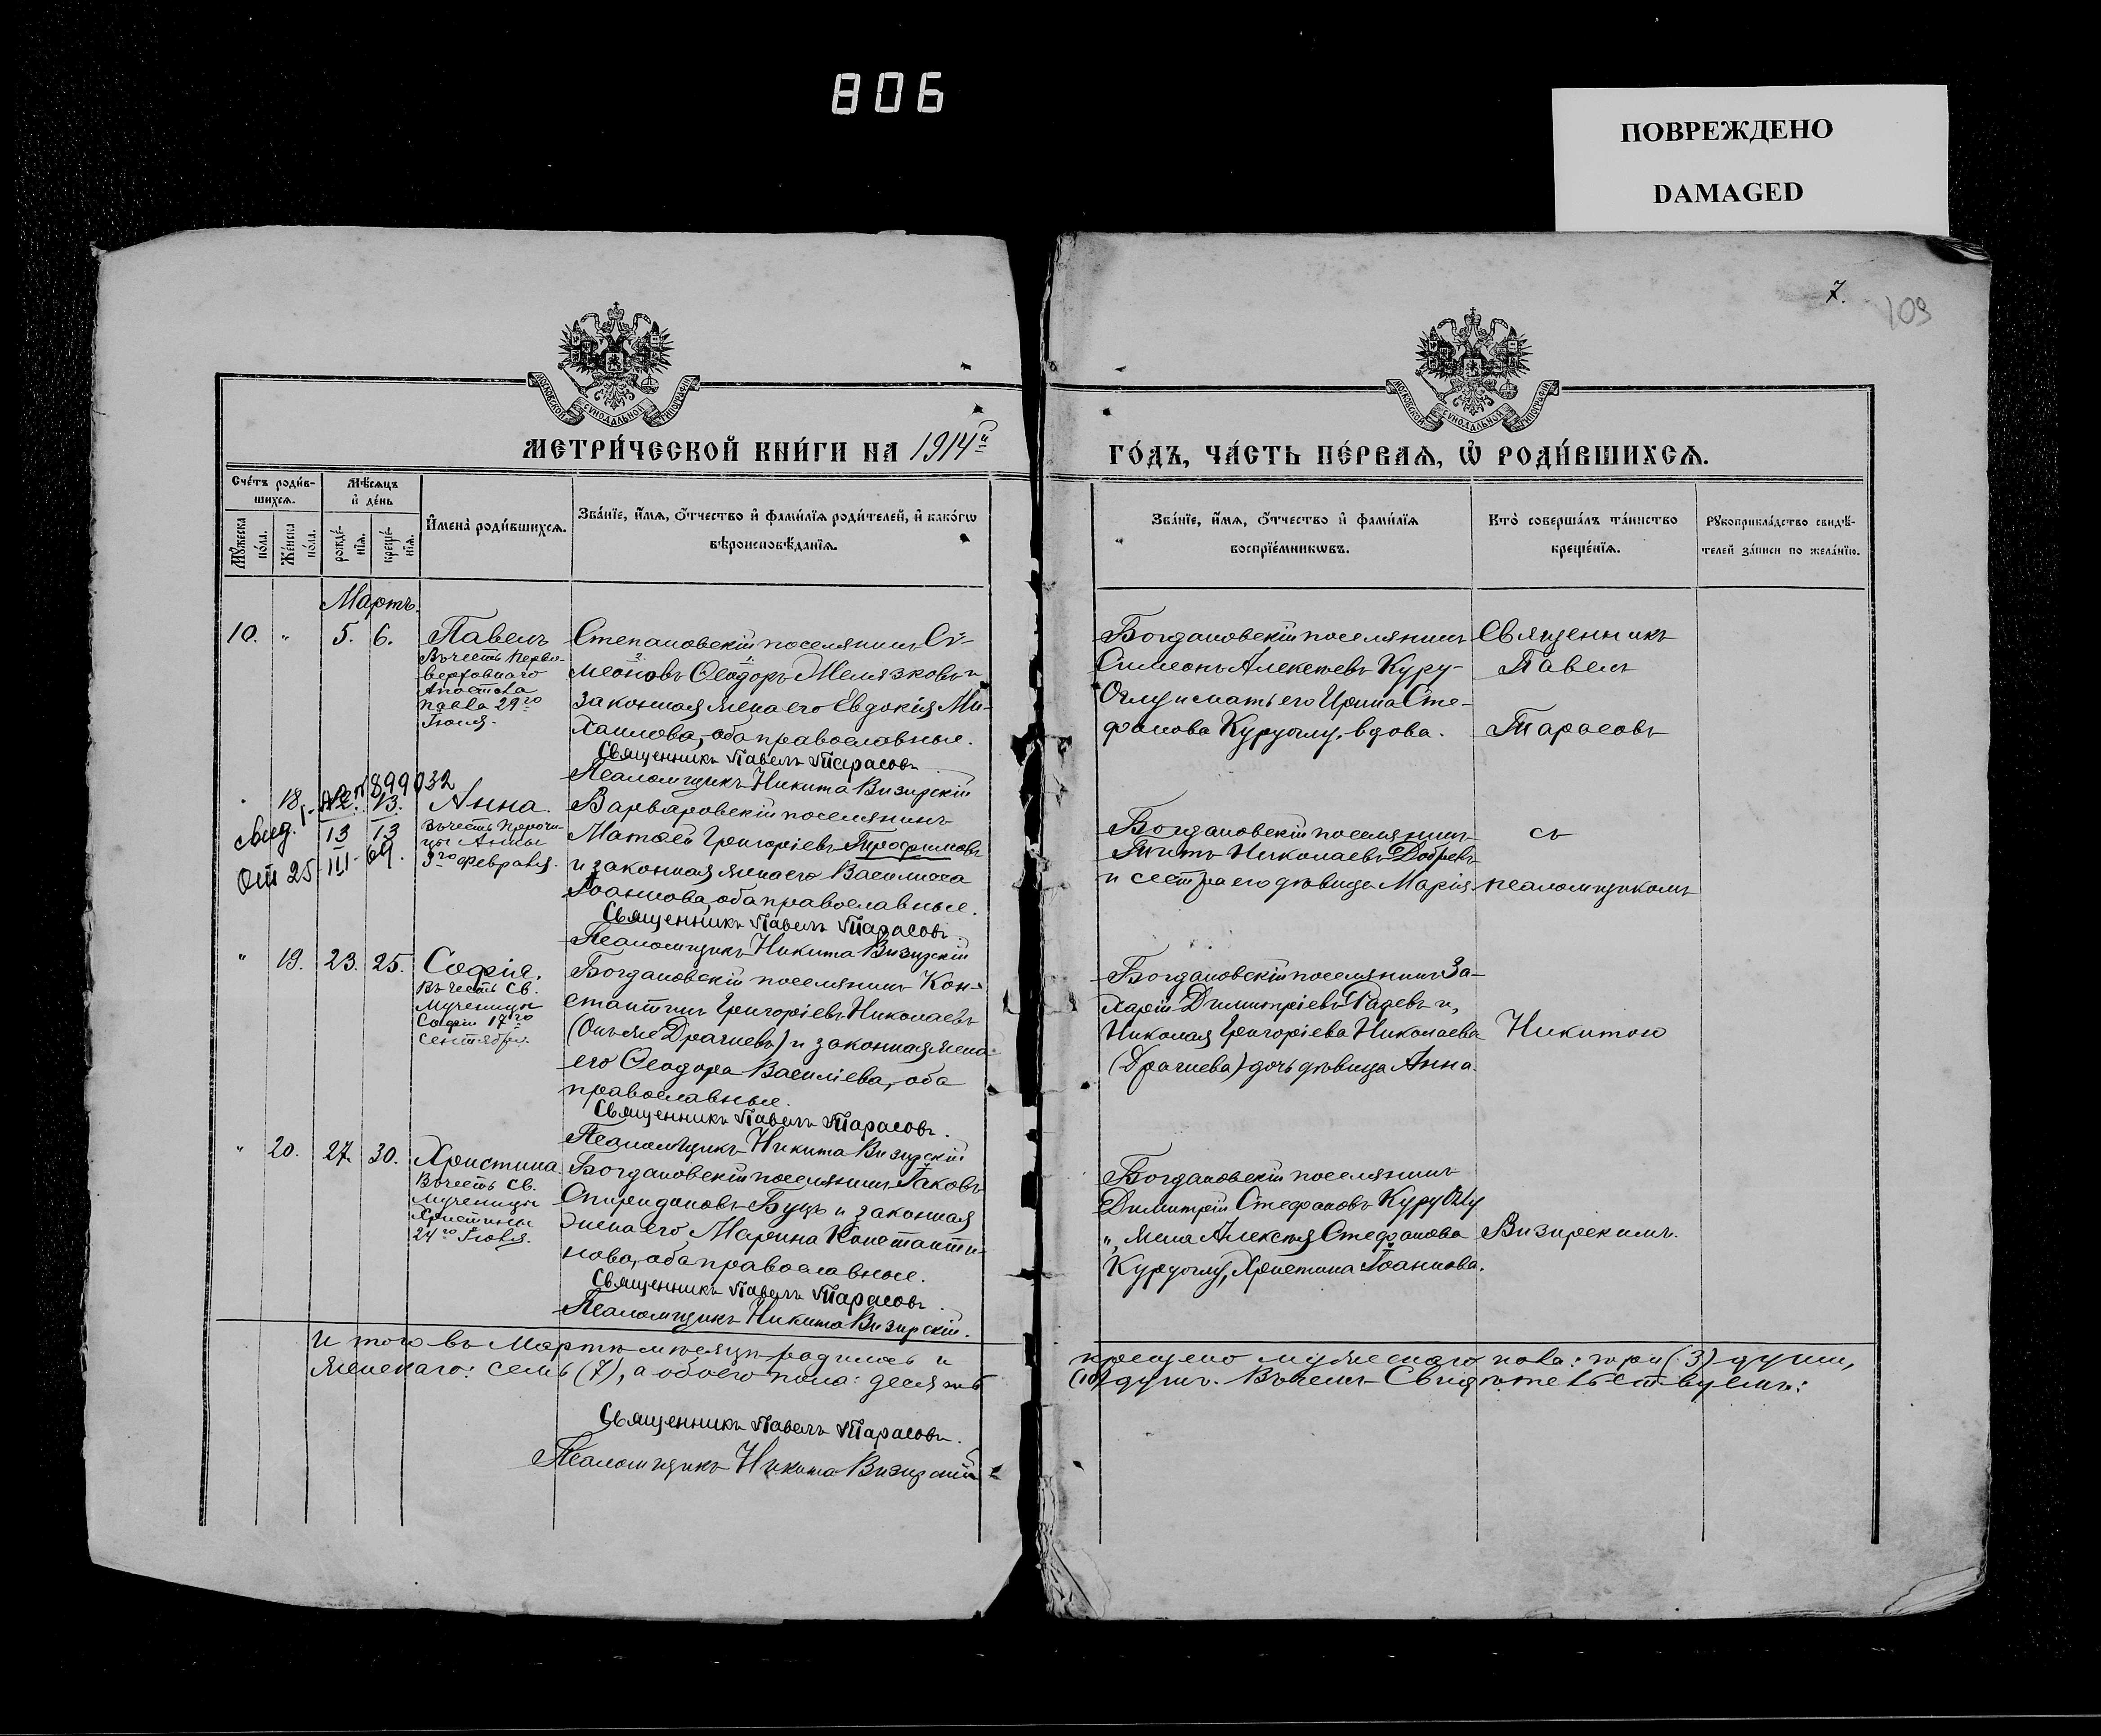 806
ПОВРЕЖДЕНО
DAMAGED
7.
109
МОСКОВСКОЙ СУНОДАЛЬНОЙ ТИПОГРАФІИ
МОСКОВСКОЙ СУНОДАЛЬНОЙ ТИПОГРАФІИ
МЕТРИ́ЧЕСКОЙ КНИ́ГИ НА 1914й
ГО́ДЪ, ЧА́СТЬ ПЕ́РВАѦ, Ѡ҆ РОДИ́ВШИХСѦ.
Сче́тъ роди́в-
шихсѧ.
Мѣ́сѧцъ
и҆ де́нь
Мꙋ́жеска
по́ла.
Же́нска
по́ла.
рожде́-
нїѧ.
креще́-
нїѧ.
И҆мена̀ роди́вшихсѧ.
Зва́нїе, и҆́мѧ, ѻ҆́тчество и҆ фами́лїѧ роди́телей, и҆ како́гѡ
вѣроисповѣ́данїѧ.
Зва́нїе, и҆́мѧ, ѻ҆́тчество и҆ фами́лїѧ
воспрїе́мникѡвъ.
Кто̀ соверша́лъ та́инство
креще́нїѧ.
Рꙋкоприкла́дство свидѣ́-
телей за́писи по жела́нїю.
Мартъ.
10. " 5. 6. Павелъ
Въ честь Перво-
верховнаго
Апостола
Павла 29го
Іюня.
Степановскій поселянинъ Си-
меоновъ Ѳеодоръ Желязковъ и
законная жена его Евдокія Ми-
хаилова, оба православные.
Священникъ Павелъ Тарасовъ
Псаломщикъ Никита Визирскій
Богдановскій поселянинъ
Симеонъ Алексѣевъ Куру-
Оглу и мать его Ирина Сте-
фанова Куруоглу, вдова.
Священникъ
Павелъ
Тарасовъ
18. 12. 13. Анна.
Въ честь Пророчи-
цы Анны
3го Февраля.
899032
свид.
13 13
От 25 III 64.
Варваровскій поселянинъ
Матѳей Григоріевъ Трофимовъ
и законная жена его Василисса
Іоаннова, оба православные.
Священникъ Павелъ Тарасовъ
Псаломщикъ Никита Визирскій
Богдановскій поселянинъ
Титъ Николаевъ Добревъ
и сестра его дѣвица Марія.
съ
псаломщикомъ
" 19. 23. 25. Софія.
Въ честь Св.
Мученицы
Софіи 17го
Сентября.
Богдановскій поселянинъ Кон-
стантинъ Григоріевъ Николаевъ
(Онъ же Драгневъ) и законная жена
его Ѳеодора Василіева, оба
православные.
Священникъ Павелъ Тарасовъ.
Псаломщикъ Никита Визирскій
Богдановскій поселянинъ За-
харій Димитріевъ Радевъ и,
Николая Григоріева Николаева
(Драгнева) дочь дѣвица Анна.
Никитою
" 20. 27. 30. Христина
Въ честь Св.
Мученицы
Христины
24го Іюля.
Богдановскій поселянинъ Іаковъ
Спиридоновъ Буцъ и законная
жена его Марина Константи-
нова, оба православные.
Священникъ Павелъ Тарасовъ.
Псаломщикъ Никита Визирскій.
Богдановскій поселянинъ
Димитрій Стефановъ КуруОглу
и, жена Алексѣя Стефанова
Куруоглу, Христина Іоаннова.
Визирскимъ.
И того въ Мартѣ мѣсяцѣ родилось и крещено мужескаго пола: три (3) души,
женскаго: семь (7), а обоего пола: десять (10) душъ. Въ чемъ Свидѣтельствуемъ:
Священникъ Павелъ Тарасовъ.
Псаломщикъ Никита Визирскій